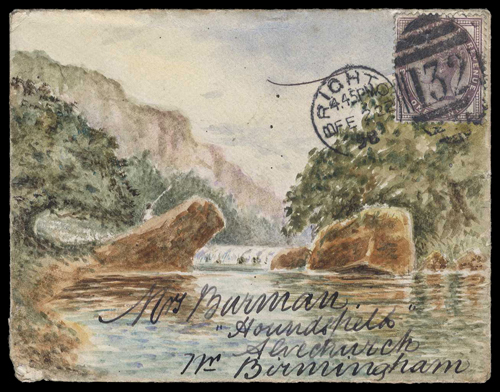 BRIGHTON
4.45PM
FE 22
98
132
Mrs Burman.
"Houndsfield"
Alvechurch
Nr. Birmingham